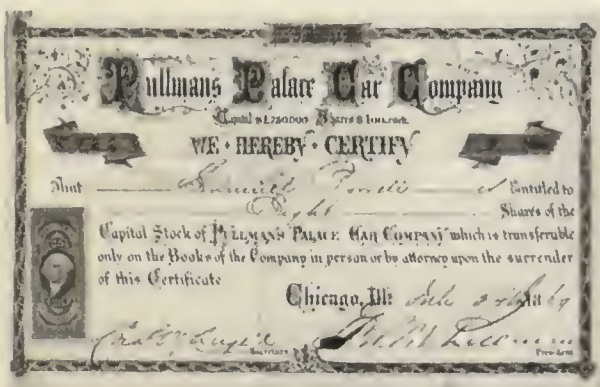 Pullmans Palace Car Company
Capital $1,250,000. Shares $100 each.
WE · HEREBY · CERTIFY
That is Entitled to
Eight Shares of the
Capital Stock of PULLMAN'S PALACE CAR COMPANY which is transferable
only on the Books of the Company in person or by attorney upon the surrender
of this Certificate
Chicago, Ill: July 18
Secretary President